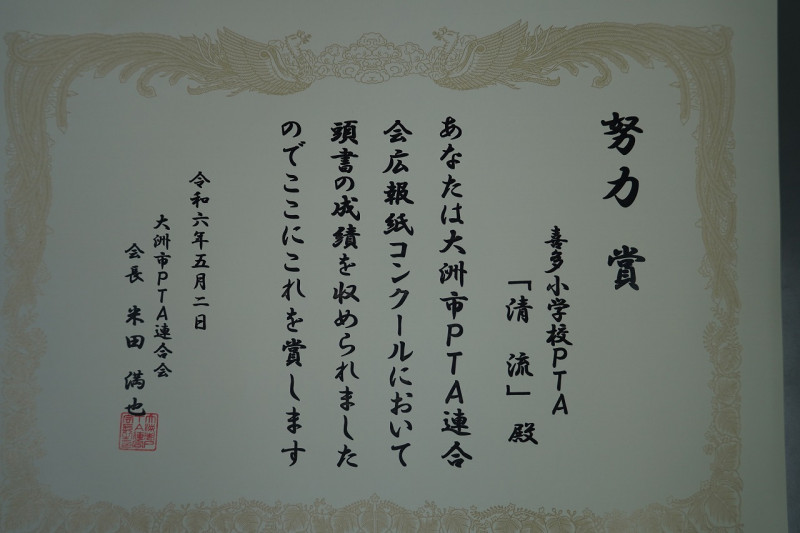 努力賞
喜多小学校PTA
「清流」殿
あなたは大洲市PTA連合
会広報紙コンクールにおいて
頭書の成績を収められました
のでここにこれを賞します
令和六年五月二日
大洲市PTA連合会
会長 米田満也